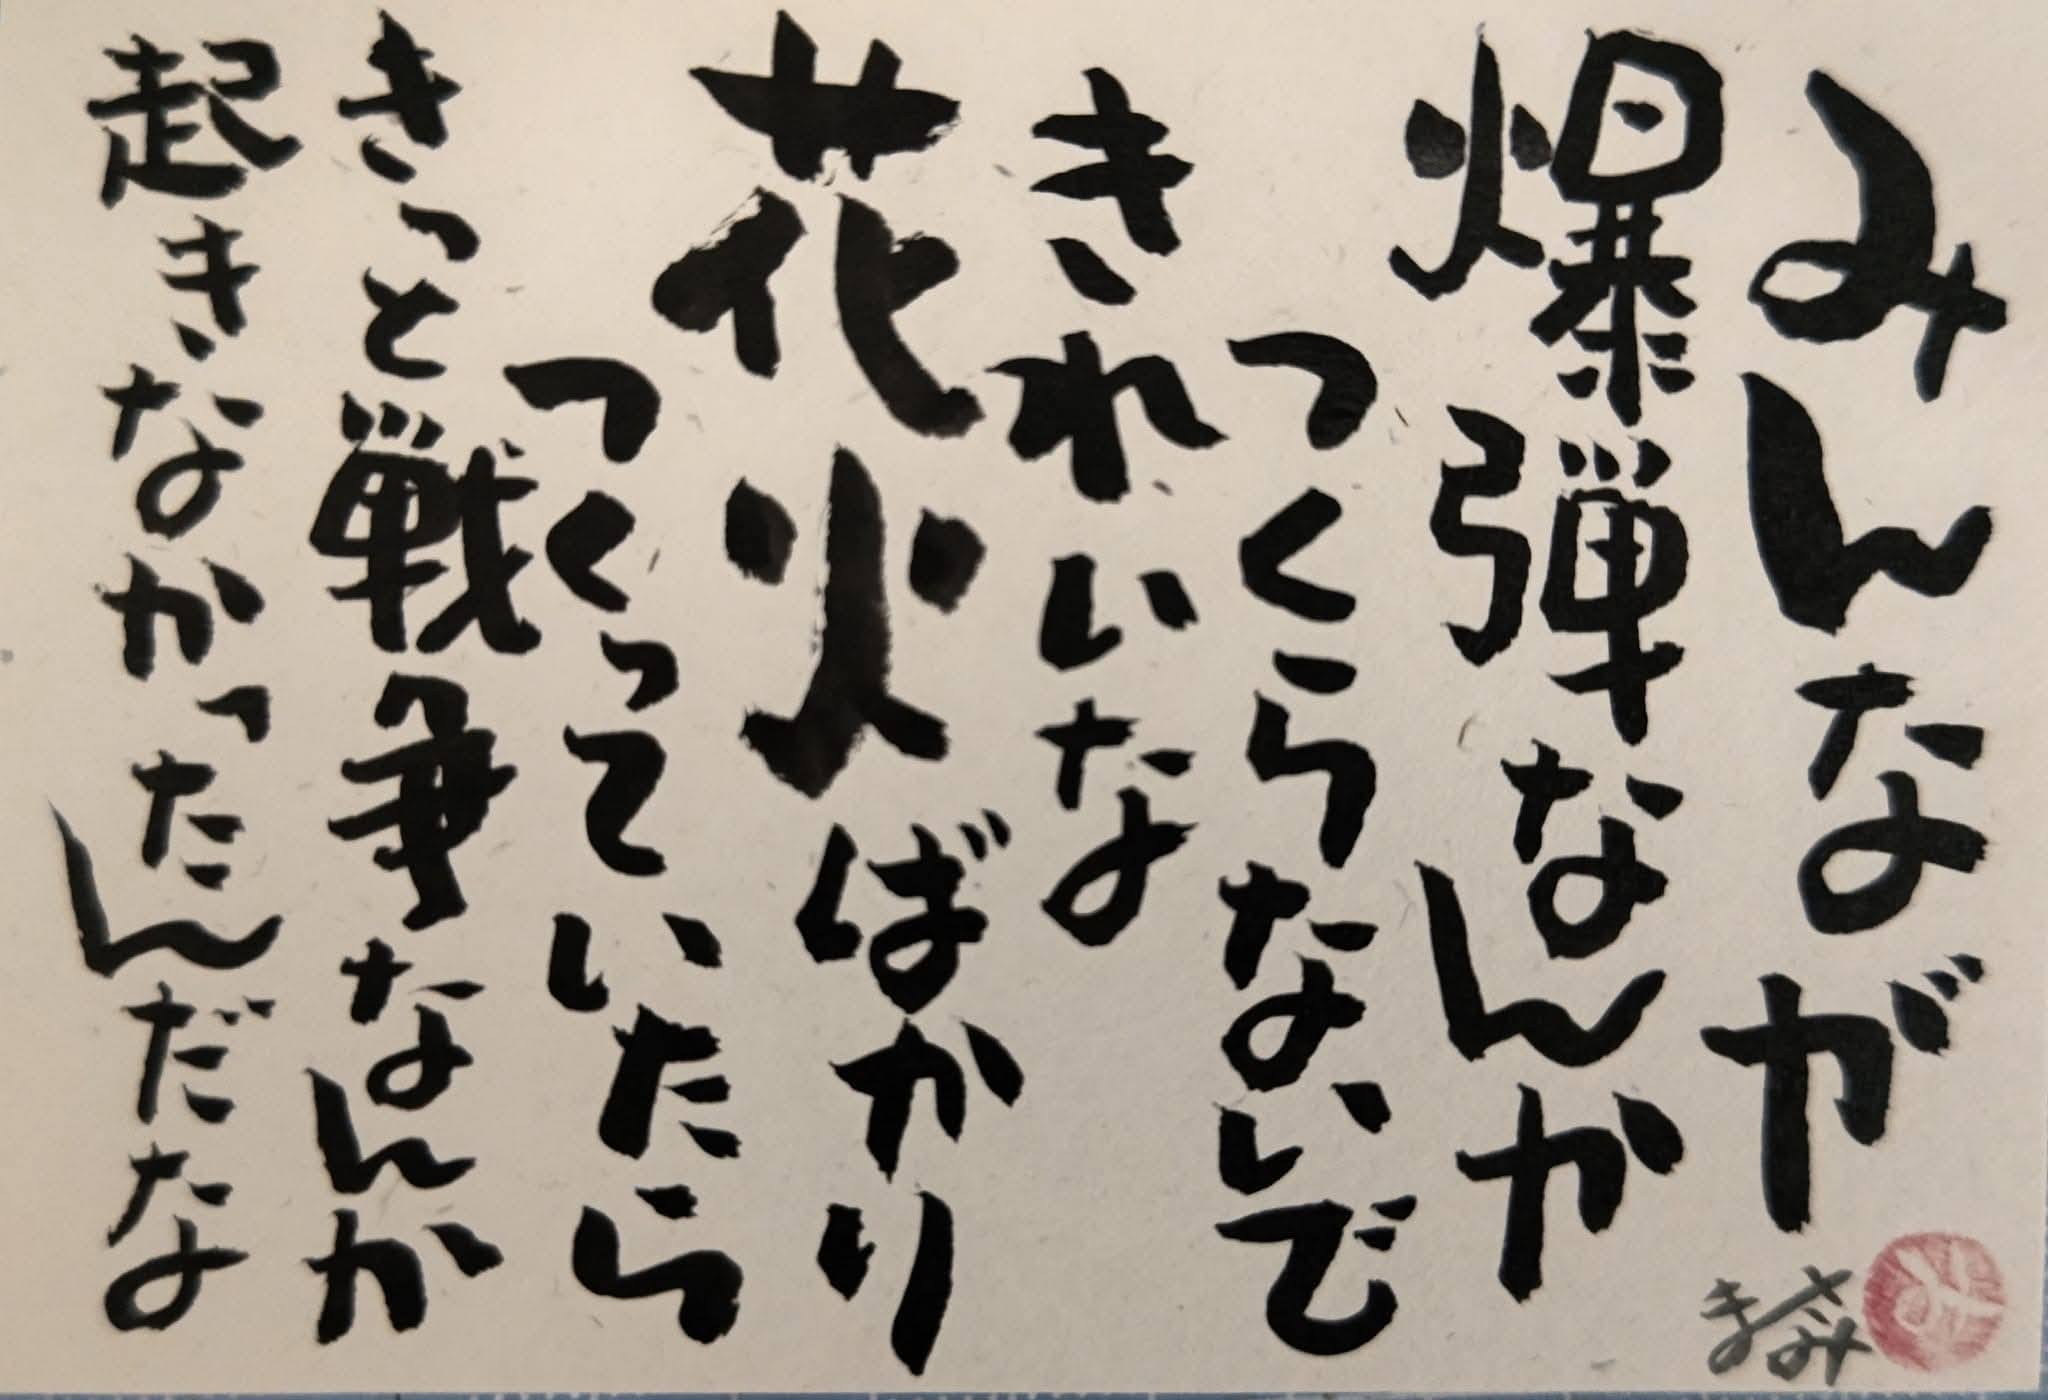 みんなが
爆弾なんか
つくらないで
きれいな
花火ばかり
つくっていたら
きっと戦争なんか
起きなかったんだな